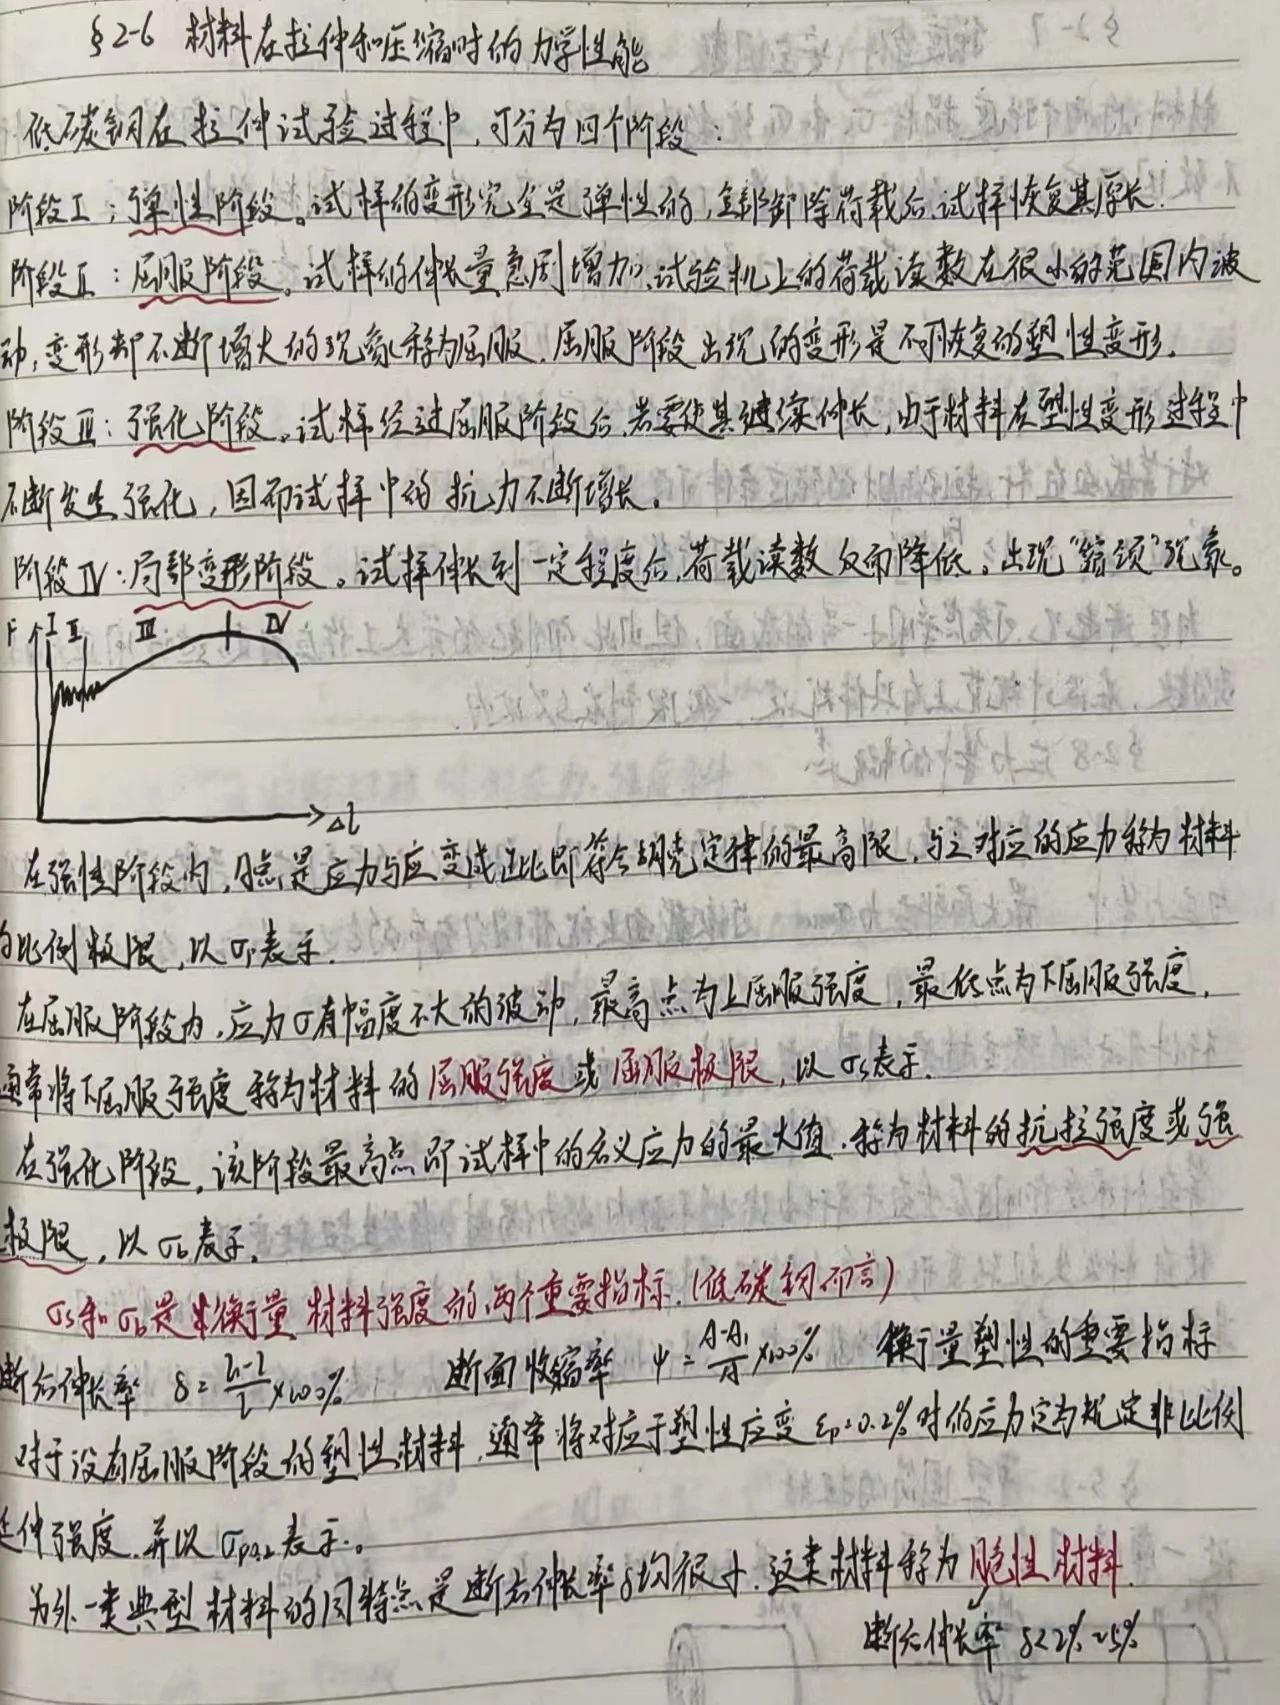 §2-6 材料在拉伸和压缩时的力学性能
低碳钢在拉伸试验过程中,可分为四个阶段:
阶段Ⅰ:弹性阶段。试样的变形完全是弹性的,全部卸除荷载后,试样恢复其原长.
阶段Ⅱ:屈服阶段。试样的伸长量急剧增加,试验机上的荷载读数在很小的范围内波
动,变形却不断增大的现象称为屈服.屈服阶段出现的变形是不可恢复的塑性变形.
阶段Ⅲ:强化阶段。试样经过屈服阶段后,若要使其继续伸长,由于材料在塑性变形过程中
不断发生强化,因而试样中的抗力不断增长。
阶段Ⅳ:局部变形阶段。试样伸长到一定程度后,荷载读数反而降低。出现“缩颈”现象。
F Ⅰ Ⅱ Ⅲ Ⅳ
Δl
在强性阶段内,点是应力与应变成正比即符合胡克定律的最高限,与之对应的应力称为材料
的比例极限,以σp表示.
在屈服阶段内,应力σ有幅度不大的波动,最高点为上屈服强度,最低点为下屈服强度,
通常将下屈服强度称为材料的屈服强度或屈服极限,以σs表示.
在强化阶段,该阶段最高点即试样中的名义应力的最大值,称为材料的抗拉强度或强
极限,以σb表示.
σs和σb是衡量材料强度的两个重要指标.(低碳钢而言)
断后伸长率 δ=\frac{l₁-l}{l}×100% 断面收缩率 ψ=\frac{A-A₁}{A}×100% 衡量塑性的重要指标
对于没有屈服阶段的塑性材料,通常将对应于塑性应变εp=0.2%时的应力定为规定非比例
延伸强度.并以σp0.2表示.。
为外一类典型材料的同特点是断后伸长率δ均很小.这类材料称为脆性材料.
断后伸长率 δ<2%~5%